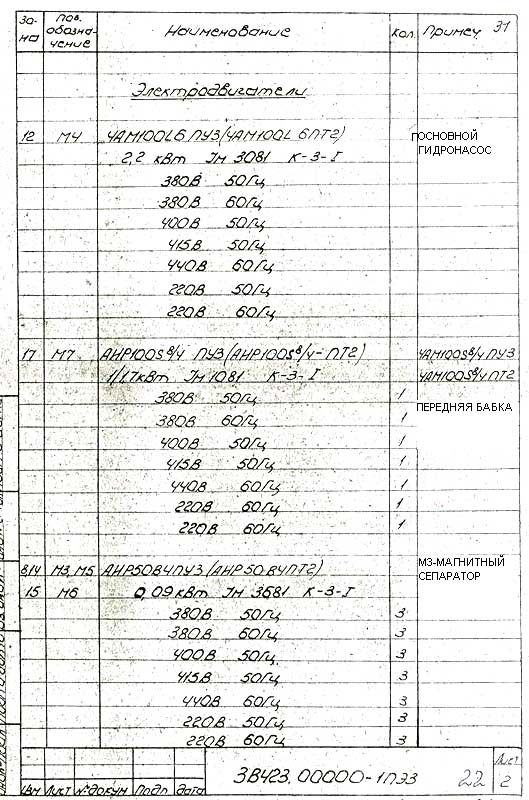 Зо-
на
Поз.
обозна-
чение
Наименование
Кол.
Примеч
31
Электродвигатели
12 М4 4АМ100L6 ПУ3 (4АМ100L 6ПТ2) ПОСНОВНОЙ
2,2 кВт Iм 3081 К-3-I ГИДРОНАСОС
380В 50Гц
380В 60Гц
400В 50Гц
415В 50Гц
440В 60Гц
220В 50Гц
220В 60Гц
17 М7 АИР100S8/4 ПУ3 (АИР100S8/4-ПТ2) 4АМ100S8/4 ПУ3
1/1,7кВт Iм 1081 К-3-I 4АМ100S8/4 ПТ2
380В 50Гц 1 ПЕРЕДНЯЯ БАБКА
380В 60Гц 1
400В 50Гц 1
415В 50Гц 1
440В 60Гц 1
220В 60Гц 1
220В 60Гц 1
8,14 М3, М5 АИР50В4ПУ3 (АИР50В4ПТ2) М3-МАГНИТНЫЙ
15 М6 0,09кВт Iм 3681 К-3-I СЕПАРАТОР
380В 50Гц 3
380В 60Гц 3
400В 50Гц 3
415В 50Гц 3
440В 60Гц 3
220В 50Гц 3
220В 60Гц 3
Изм Лист № докум Подп дата
3В423.00000-1ПЭ3
22
Лист
2